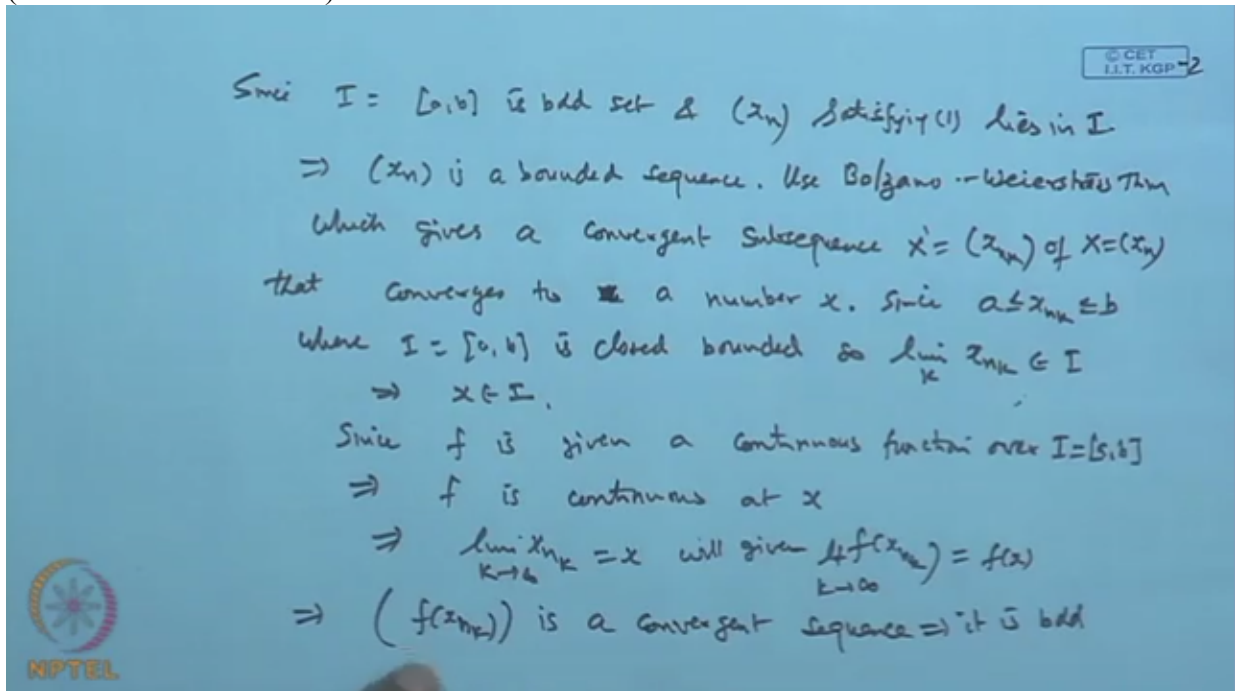 © CET
I.I.T. KGP -2
Since I = [a,b] is bdd set & (xn) Satisfying (1) lies in I.
⇒ (xn) is a bounded sequence. Use Bolzano-Weierstrass Thm
which gives a convergent subsequence X' = (x_{n_k}) of X=(xn)
that converges to a number x. Since a ≤ x_{n_k} ≤ b
where I = [a,b] is closed bounded so lim_k x_{n_k} ∈ I
⇒ x ∈ I.
Since f is given a continuous function over I=[a,b]
⇒ f is continuous at x
⇒ lim_{k→∞} x_{n_k} = x will given Lt_{k→∞} f(x_{n_k}) = f(x)
⇒ (f(x_{n_k})) is a convergent sequence ⇒ it is bdd
NPTEL